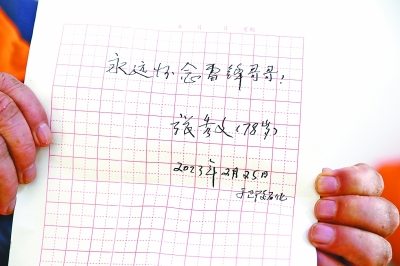 永远怀念雷锋哥哥!
张文(78岁)
2023年2月25日
于石化